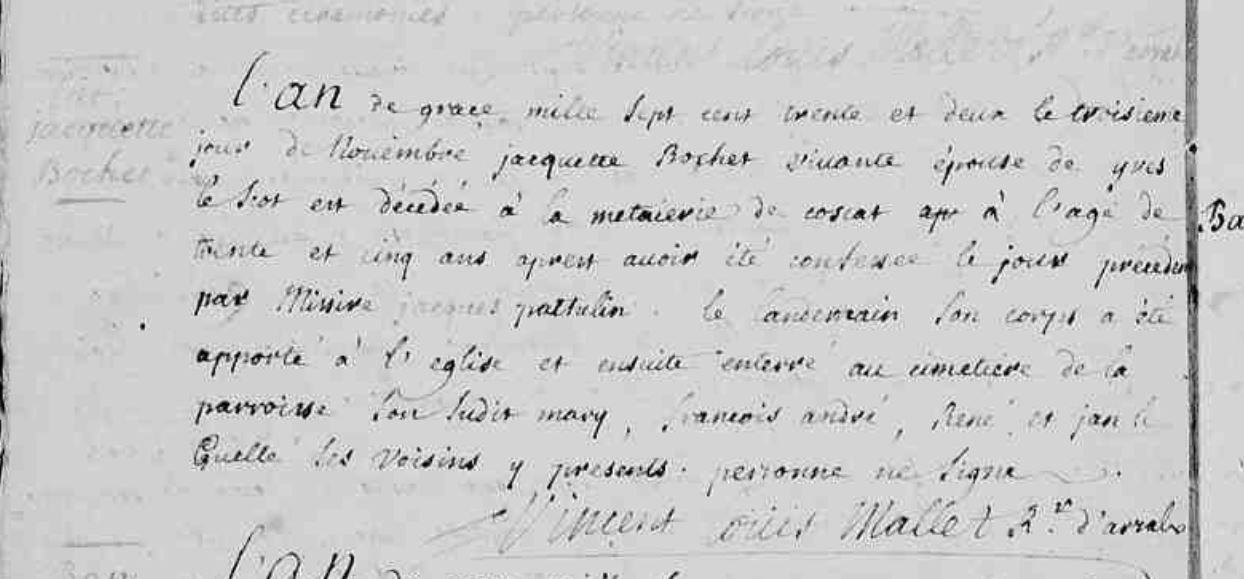 dites ceremonies personne ne signe
Vincent Louis Mallet
Enter.
jacquette
Bochet
L'an de grace mille sept cent trente et deux le troisieme
jour de Novembre jacquette Bochet vivante épouse de yves
le Sot est décédée à la metaierie de coscat à l'age de
trente et cinq ans aprest avoir été confessée le jour précédent
par Missire jacques pathelin. le landemain son corps a été
apporté à l'église et ensuite enterré au cimetiere de la
parroisse son sudit mary, francois andré, René, et jan le
Guellé ses voisins y presents. personne ne signe
Vincent Louis Mallet Rr. d'arzal
L'an de
Ba